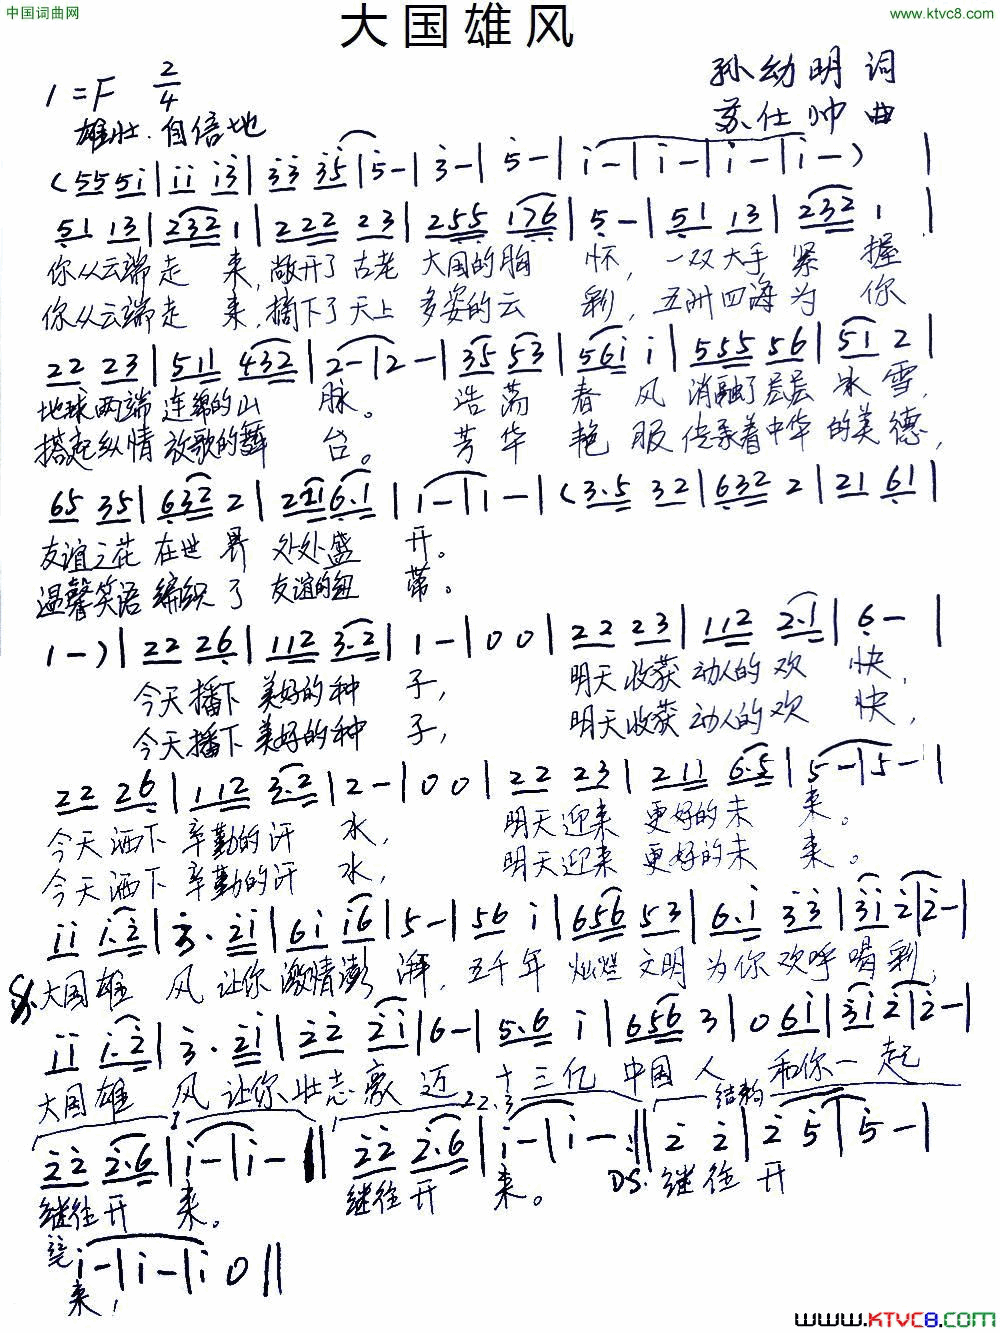 中国词曲网
www.ktvc8.com
大国雄风
1=F 2/4
孙幼明 词
苏仕帅 曲
雄壮.自信地
(55 5i|ii i3|33 35|5-|3-|5-|i-|i-|i-|i-)|
51 13|232 1|222 23|255 176|5-|51 13|232 1|
你从云端走 来,敞开了古老 大国的胸 怀,一双大手 紧 握
你从云端走 来,摘下了天上 多姿的云 彩,五洲四海为 你
22 23|511 432|2-|2-|35 53|561 i|555 56|51 2|
地球两端 连绵的山 脉。 浩荡 春 风 消融了层层 冰 雪,
搭起纵情 放歌的舞 台。 芳华 艳 服 传承着中华 的美 德,
65 35|632 2|221 6.1|1-|1-|(3.5 32|632 2|21 61|
友谊之花 在世 界 处处盛 开。
温馨笑语 编织 了 友谊的纽 带。
1-)|22 26|112 3.2|1-|00|22 23|112 2.1|6-|
今天播下 美好的种 子, 明天收获 动人的欢 快,
今天播下 美好的种 子, 明天收获 动人的欢 快,
22 26|112 3.2|2-|00|22 23|211 6.5|5-|5-|
今天洒下 辛勤的汗 水, 明天迎来 更好的未 来。
今天洒下 辛勤的汗 水, 明天迎来 更好的未 来。
ii i.2|3. 2i|6i i6|5-|56 i|656 53|6.i 33|3i 2|2-|
大国雄 风 让你 激情澎 湃, 五千年 灿烂 文明 为你 欢呼 喝彩,
ii i.2|3. 2i|22 2i|6-|5.6 i|656 3|0 6i|3i 2|2-|
大国雄 风 让你 壮志豪 迈 十三亿 中国 人 和你一起
1 2.3 结束
22 2.6|i-|i-‖22 2.6|i-|i-:‖2 2|2 5|5-|
继往开 来。 继往开 来。 D.S. 继往开
i-|i-|i 0‖
来!
www.KTVC8.com